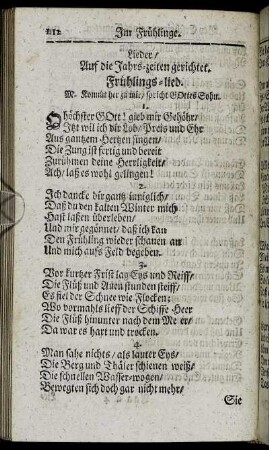 212 Im Frühlinge.
Lieder/
Auf die Jahrs-zeiten gerichtet.
Frühlings-lied.
M. Kommt her zu mir/ spricht GOttes Sohn.
1.
O höchster GOtt! gieb mir Gehöhr/
Itzt wil ich dir Lob/ Preis und Ehr
Aus gantzem Hertzen singen/
Die Zung ist fertig und bereit
Zurühmen deine Herrligkeit/
Ach/ laß es wohl gelingen!
2.
Ich dancke dir gantz inniglich/
Daß du den kalten Winter mich
Hast laßen überleben/
Und mir gegönnet/ daß ich kan
Den Frühling wieder schauen an
Und mich aufs Feld begeben.
3.
Vor kurtzer Frist lag Eys und Reiff/
Die Flüß und Auen stunden steiff/
Es fiel der Schnee wie Flocken;
Wo vormahls lieff der Schiffe Heer
Die Flüß hinunter nach dem Meer/
Da war es hart und trocken.
4.
Man sahe nichts/ als lauter Eys/
Die Berg und Thäler schienen weiß/
Die schnellen Wasser-wogen/
Bewegten sich doch gar nicht mehr/
Sie